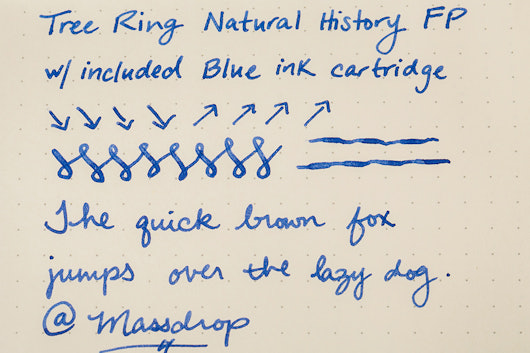 Tree Ring Natural History FP
w/ included Blue ink cartridge
The quick brown fox
jumps over the lazy dog.
@ Massdrop